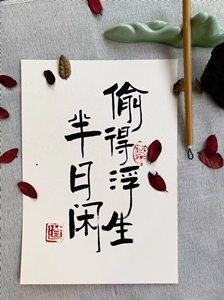 偷得浮生
半日闲